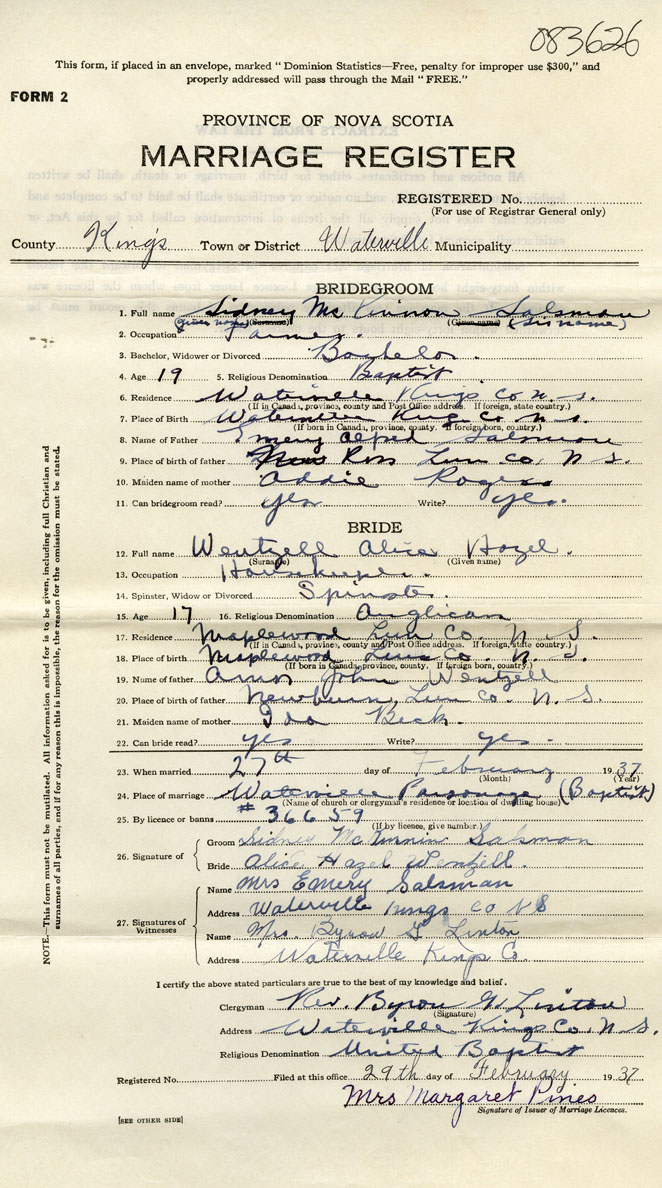 083626
This form, if placed in an envelope, marked " Dominion Statistics—Free, penalty for improper use $300," and
properly addressed will pass through the Mail " FREE."
FORM 2
PROVINCE OF NOVA SCOTIA
MARRIAGE REGISTER
REGISTERED No.
(For use of Registrar General only)
County Kings Town or District Waterville Municipality
BRIDEGROOM
1. Full name Sidney Mc Kinnon Salsman
(given name) (Surname) (Given name) (Surname)
2. Occupation Farmer
3. Bachelor, Widower or Divorced Bachelor.
4. Age 19 5. Religious Denomination Baptist
6. Residence Waterville Kings Co N. S.
(If in Canada, province, county and Post Office address. If foreign, state country.)
7. Place of Birth Waterville Kings Co N. S.
(If born in Canada, province, county. If foreign born, country.)
8. Name of Father Emery Alfred Salsman
9. Place of birth of father New Ross Lun Co, N S.
10. Maiden name of mother Addie Rogers
11. Can bridegroom read? yes Write? yes.
BRIDE
12. Full name Wentzell Alice Hazel.
(Surname) (Given name)
13. Occupation Housekeeper.
14. Spinster, Widow or Divorced Spinster
15. Age 17 16. Religious Denomination Anglican
17. Residence Maplewood Lun Co. N. S.
(If in Canada, province, county and Post Office address. If foreign, state country.)
18. Place of birth Maplewood Lun Co. N. S.
(If born in Canada, province, county. If foreign born, country.)
19. Name of father Amos John Wentzell
20. Place of birth of father Newburn, Lun Co. N. S.
21. Maiden name of mother Ida Beck.
22. Can bride read? yes Write? yes -
23. When married 27th day of February 1937
(Month) (Year)
24. Place of marriage Waterville Parsonage (Baptist)
(Name of church or clergyman's residence or location of dwelling house)
25. By licence or banns # 36659
(If by licence, give number.)
26. Signature of
Groom Sidney McKinnin Salsman
Bride Alice Hazel Wentzell.
27. Signatures of Witnesses
Name Mrs Emery Salsman
Address Waterville Kings Co N S
Name Mrs. Byron G Linton
Address Waterville Kings Co.
I certify the above stated particulars are true to the best of my knowledge and belief.
Clergyman Rev. Byron G. Linton
(Signature)
Address Waterville Kings Co. N. S.
Religious Denomination United Baptist
Registered No. Filed at this office 29th day of February 1937
Mrs Margaret Pines
Signature of Issuer of Marriage Licences.
[SEE OTHER SIDE]
NOTE.—This form must not be mutilated. All information asked for is to be given, including full Christian and
surnames of all parties, and if for any reason this is impossible, the reason for the omission must be stated.